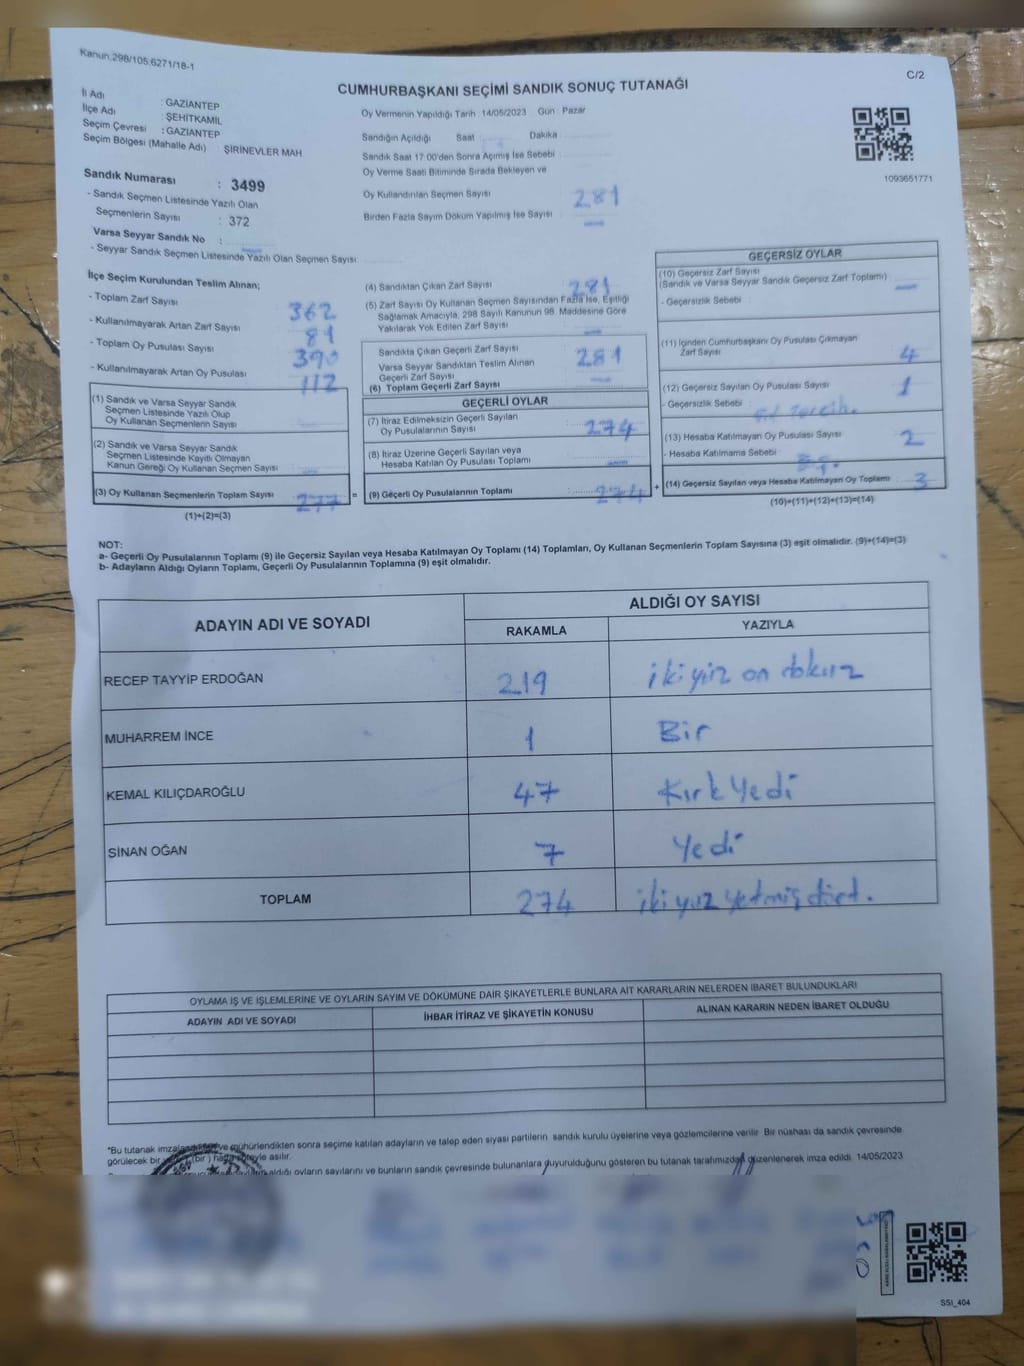 Kanun.298/105.6271/18-1
C/2
CUMHURBAŞKANI SEÇİMİ SANDIK SONUÇ TUTANAĞI
İl Adı : GAZİANTEP
İlçe Adı : ŞEHİTKAMİL
Seçim Çevresi : GAZİANTEP
Seçim Bölgesi (Mahalle Adı) : ŞİRİNEVLER MAH
Sandık Numarası : 3499
- Sandık Seçmen Listesinde Yazılı Olan
Seçmenlerin Sayısı : 372
Varsa Seyyar Sandık No :
- Seyyar Sandık Seçmen Listesinde Yazılı Olan Seçmen Sayısı:
Oy Vermenin Yapıldığı Tarih :14/05/2023 Gün : Pazar
Sandığın Açıldığı Saat : Dakika :
Sandık Saat 17:00'den Sonra Açılmış İse Sebebi :
Oy Verme Saati Bitiminde Sırada Bekleyen ve
Oy Kullandırılan Seçmen Sayısı : 281
Birden Fazla Sayım Döküm Yapılmış İse Sayısı : —
1093651771
İlçe Seçim Kurulundan Teslim Alınan;
- Toplam Zarf Sayısı : 362
- Kullanılmayarak Artan Zarf Sayısı : 81
- Toplam Oy Pusulası Sayısı : 390
- Kullanılmayarak Artan Oy Pusulası : 112
(1) Sandık ve Varsa Seyyar Sandık
Seçmen Listesinde Yazılı Olup
Oy Kullanan Seçmenlerin Sayısı :
(2) Sandık ve Varsa Seyyar Sandık
Seçmen Listesinde Kayıtlı Olmayan
Kanun Gereği Oy Kullanan Seçmen Sayısı : —
(3) Oy Kullanan Seçmenlerin Toplam Sayısı : 277
(1)+(2)=(3)
(4) Sandıktan Çıkan Zarf Sayısı : 281
(5) Zarf Sayısı Oy Kullanan Seçmen Sayısından Fazla İse, Eşitliği
Sağlamak Amacıyla, 298 Sayılı Kanunun 98. Maddesine Göre
Yakılarak Yok Edilen Zarf Sayısı : —
Sandıkta Çıkan Geçerli Zarf Sayısı : 281
Varsa Seyyar Sandıktan Teslim Alınan
Geçerli Zarf Sayısı : —
(6) Toplam Geçerli Zarf Sayısı :
GEÇERLİ OYLAR
(7) İtiraz Edilmeksizin Geçerli Sayılan
Oy Pusulalarının Sayısı : 274
(8) İtiraz Üzerine Geçerli Sayılan veya
Hesaba Katılan Oy Pusulası Toplamı : —
= (9) Geçerli Oy Pusulalarının Toplamı : 274 +
GEÇERSİZ OYLAR
(10) Geçersiz Zarf Sayısı
(Sandık ve Varsa Seyyar Sandık Geçersiz Zarf Toplamı) : —
- Geçersizlik Sebebi :
(11) İçinden Cumhurbaşkanı Oy Pusulası Çıkmayan
Zarf Sayısı : 4
(12) Geçersiz Sayılan Oy Pusulası Sayısı : 1
- Geçersizlik Sebebi :
(13) Hesaba Katılmayan Oy Pusulası Sayısı : 2
- Hesaba Katılmama Sebebi :
(14) Geçersiz Sayılan veya Hesaba Katılmayan Oy Toplamı : 3
(10)+(11)+(12)+(13)=(14)
NOT:
a- Geçerli Oy Pusulalarının Toplamı (9) ile Geçersiz Sayılan veya Hesaba Katılmayan Oy Toplamı (14) Toplamları, Oy Kullanan Seçmenlerin Toplam Sayısına (3) eşit olmalıdır. (9)+(14)=(3)
b- Adayların Aldığı Oyların Toplamı, Geçerli Oy Pusulalarının Toplamına (9) eşit olmalıdır.
ADAYIN ADI VE SOYADI ALDIĞI OY SAYISI
RAKAMLA YAZIYLA
RECEP TAYYİP ERDOĞAN 219 iki yüz on dokuz
MUHARREM İNCE 1 Bir
KEMAL KILIÇDAROĞLU 47 Kırk Yedi
SİNAN OĞAN 7 Yedi
TOPLAM 274 iki yüz yetmiş dört.
OYLAMA İŞ VE İŞLEMLERİNE VE OYLARIN SAYIM VE DÖKÜMÜNE DAİR ŞİKAYETLERLE BUNLARA AİT KARARLARIN NELERDEN İBARET BULUNDUKLARI
ADAYIN ADI VE SOYADI İHBAR İTİRAZ VE ŞİKAYETİN KONUSU ALINAN KARARIN NEDEN İBARET OLDUĞU
*Bu tutanak ve mühürlendikten sonra seçime katılan adayların ve talep eden siyasi partilerin sandık kurulu üyelerine veya gözlemcilerine verilir. Bir nüshası da sandık çevresinde
görülecek bir (bir) hafta süreyle asılır.
aldığı oyların sayılarını ve bunların sandık çevresinde bulunanlara duyurulduğunu gösteren bu tutanak tarafımızdan düzenlenerek imza edildi. 14/05/2023
SSI_404